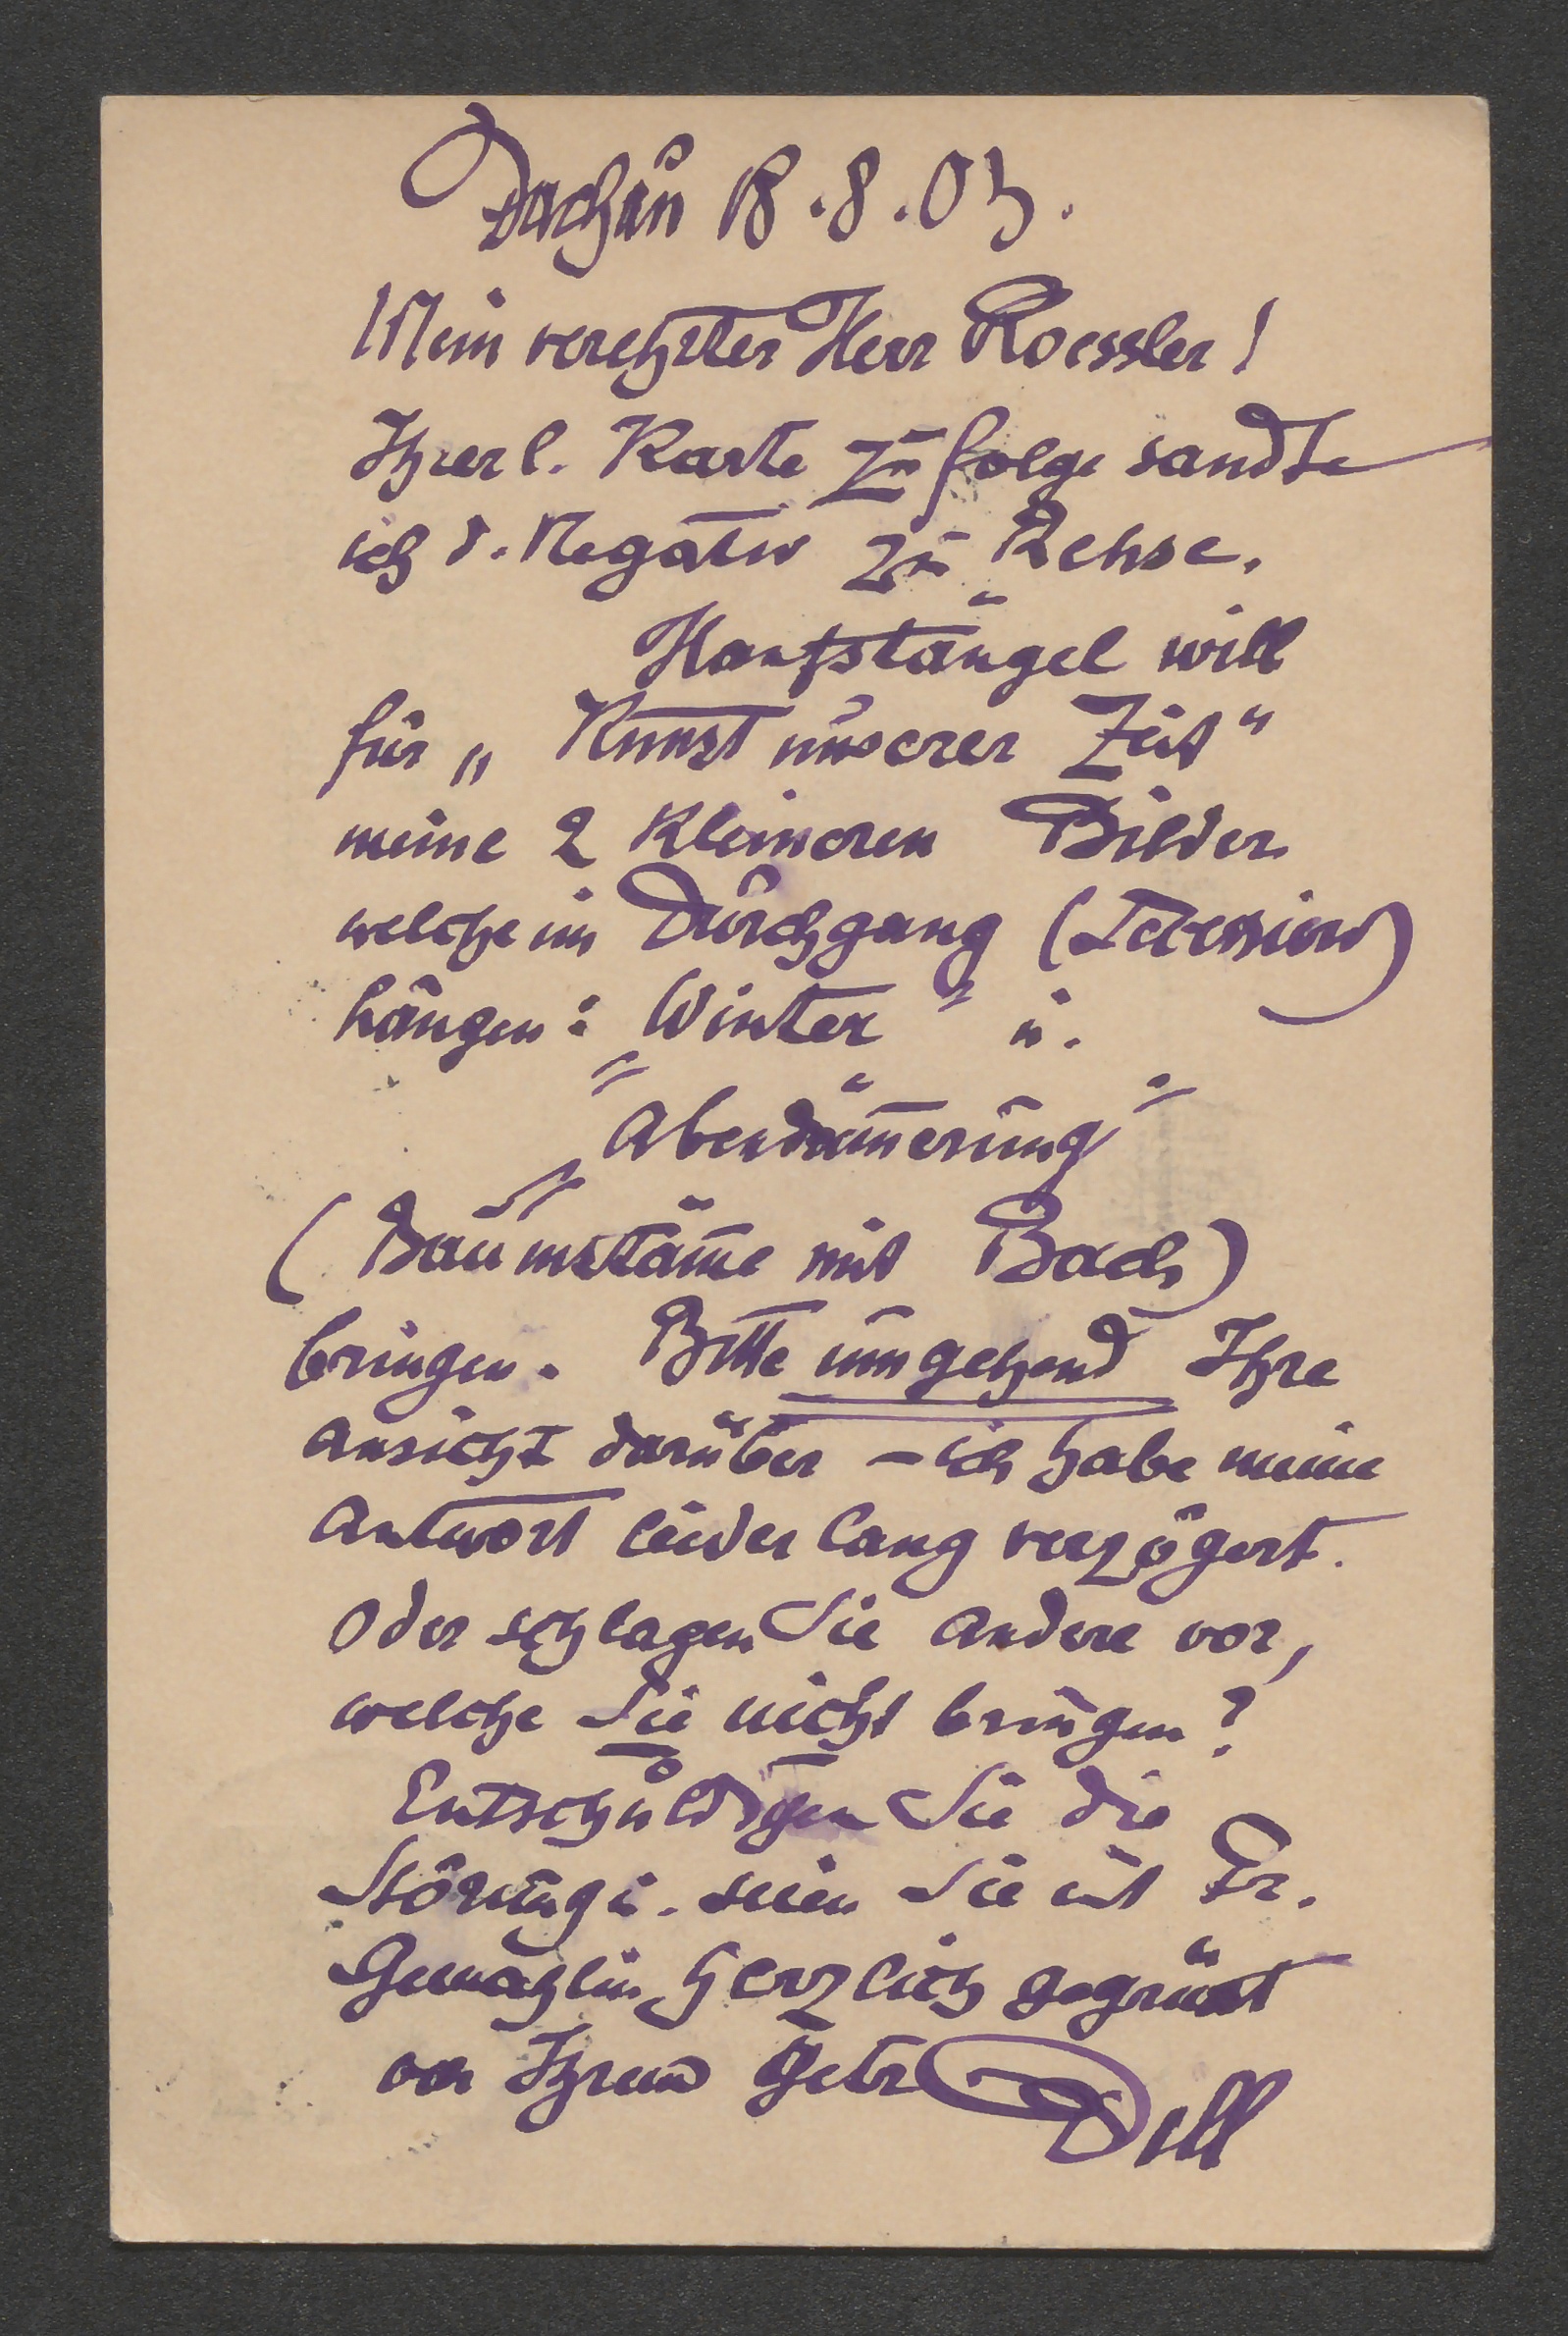 Dachau 18.8.03.
Mein verehrter Herr Roessler!
Ihrer l. Karte zufolge sandte
ich d. Negativ zu Rehse.
Hanfstängel will
für „Kunst unserer Zeit“
meine 2 kleineren Bilder
welche im Durchgang (Secession)
hängen: „Winter“ u.
„Abendämerung“
(Baumstäm̅e mit Bach)
bringen. Bitte umgehend Ihre
Ansicht darüber – ich habe meine
Antwort leider lang verzögert.
Oder schlagen Sie andere vor,
welche Sie nicht bringen?
Entschuldigen Sie die
Störung u. seien Sie mit Fr.
Gemahlin herzlich gegrüsst
von Ihrem getr Dill